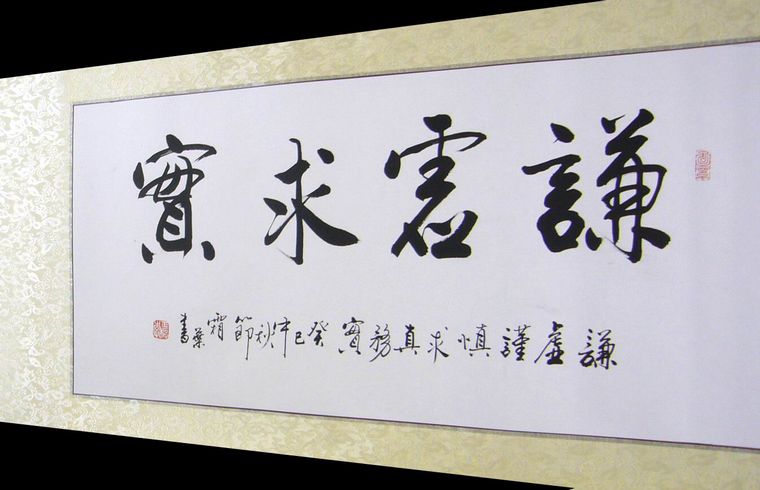 謙虛求實
謙虛謹慎求真務實癸巳中秋節霜葉書